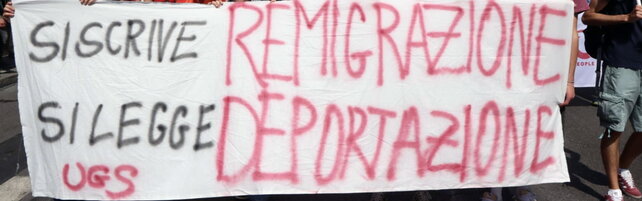 SI SCRIVE REMIGRAZIONE
SI LEGGE DEPORTAZIONE
UGS
PEOPLE